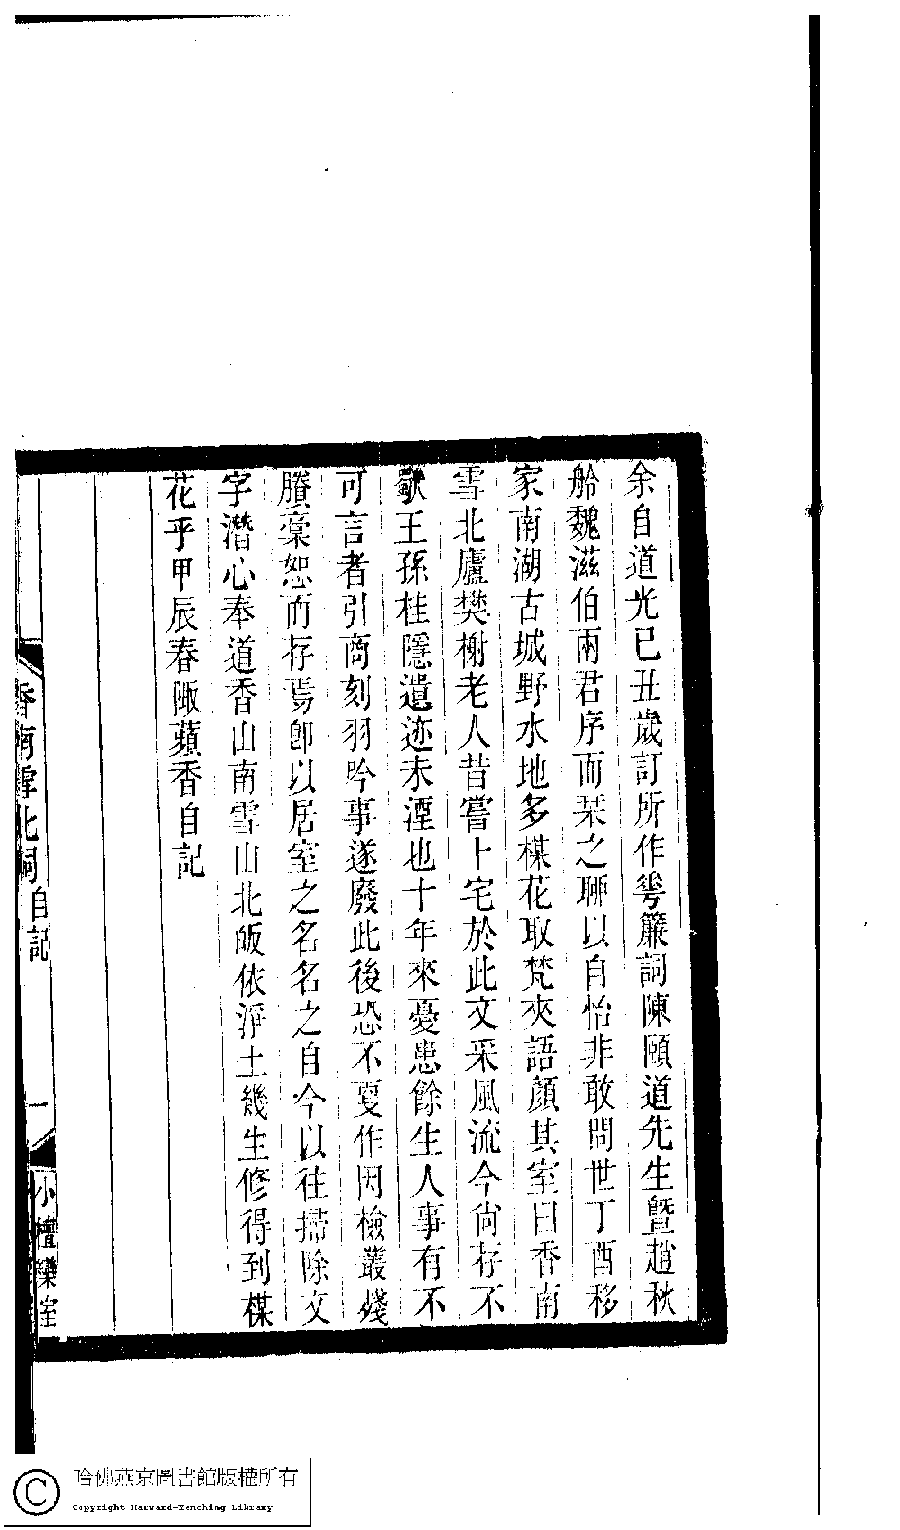 余自道光已丑歲訂所作蕚簾詞陳頤道先生曁趙秋
舲魏滋伯兩君序而栞之聊以自怡非敢問世丁酉移
家南湖古城野水地多楳花取梵夾語顏其室曰香南
雪北廬樊榭老人昔嘗卜宅於此文采風流今尙存不
歇王孫桂隱遺迹未湮也十年來憂患餘生人事有不
可言者引商刻羽吟事遂廢此後恐不夏作因檢叢殘
賸藁恕而存焉卽以居室之名名之自今以往掃除文
字潛心奉道香山南雪山北皈依淨土幾生修得到楳
花乎甲辰春陬蘋香自記
香南雪北詞自記
一
小檀欒室
哈佛燕京圖書館版權所有
Copyright Harvard-Yenching Library